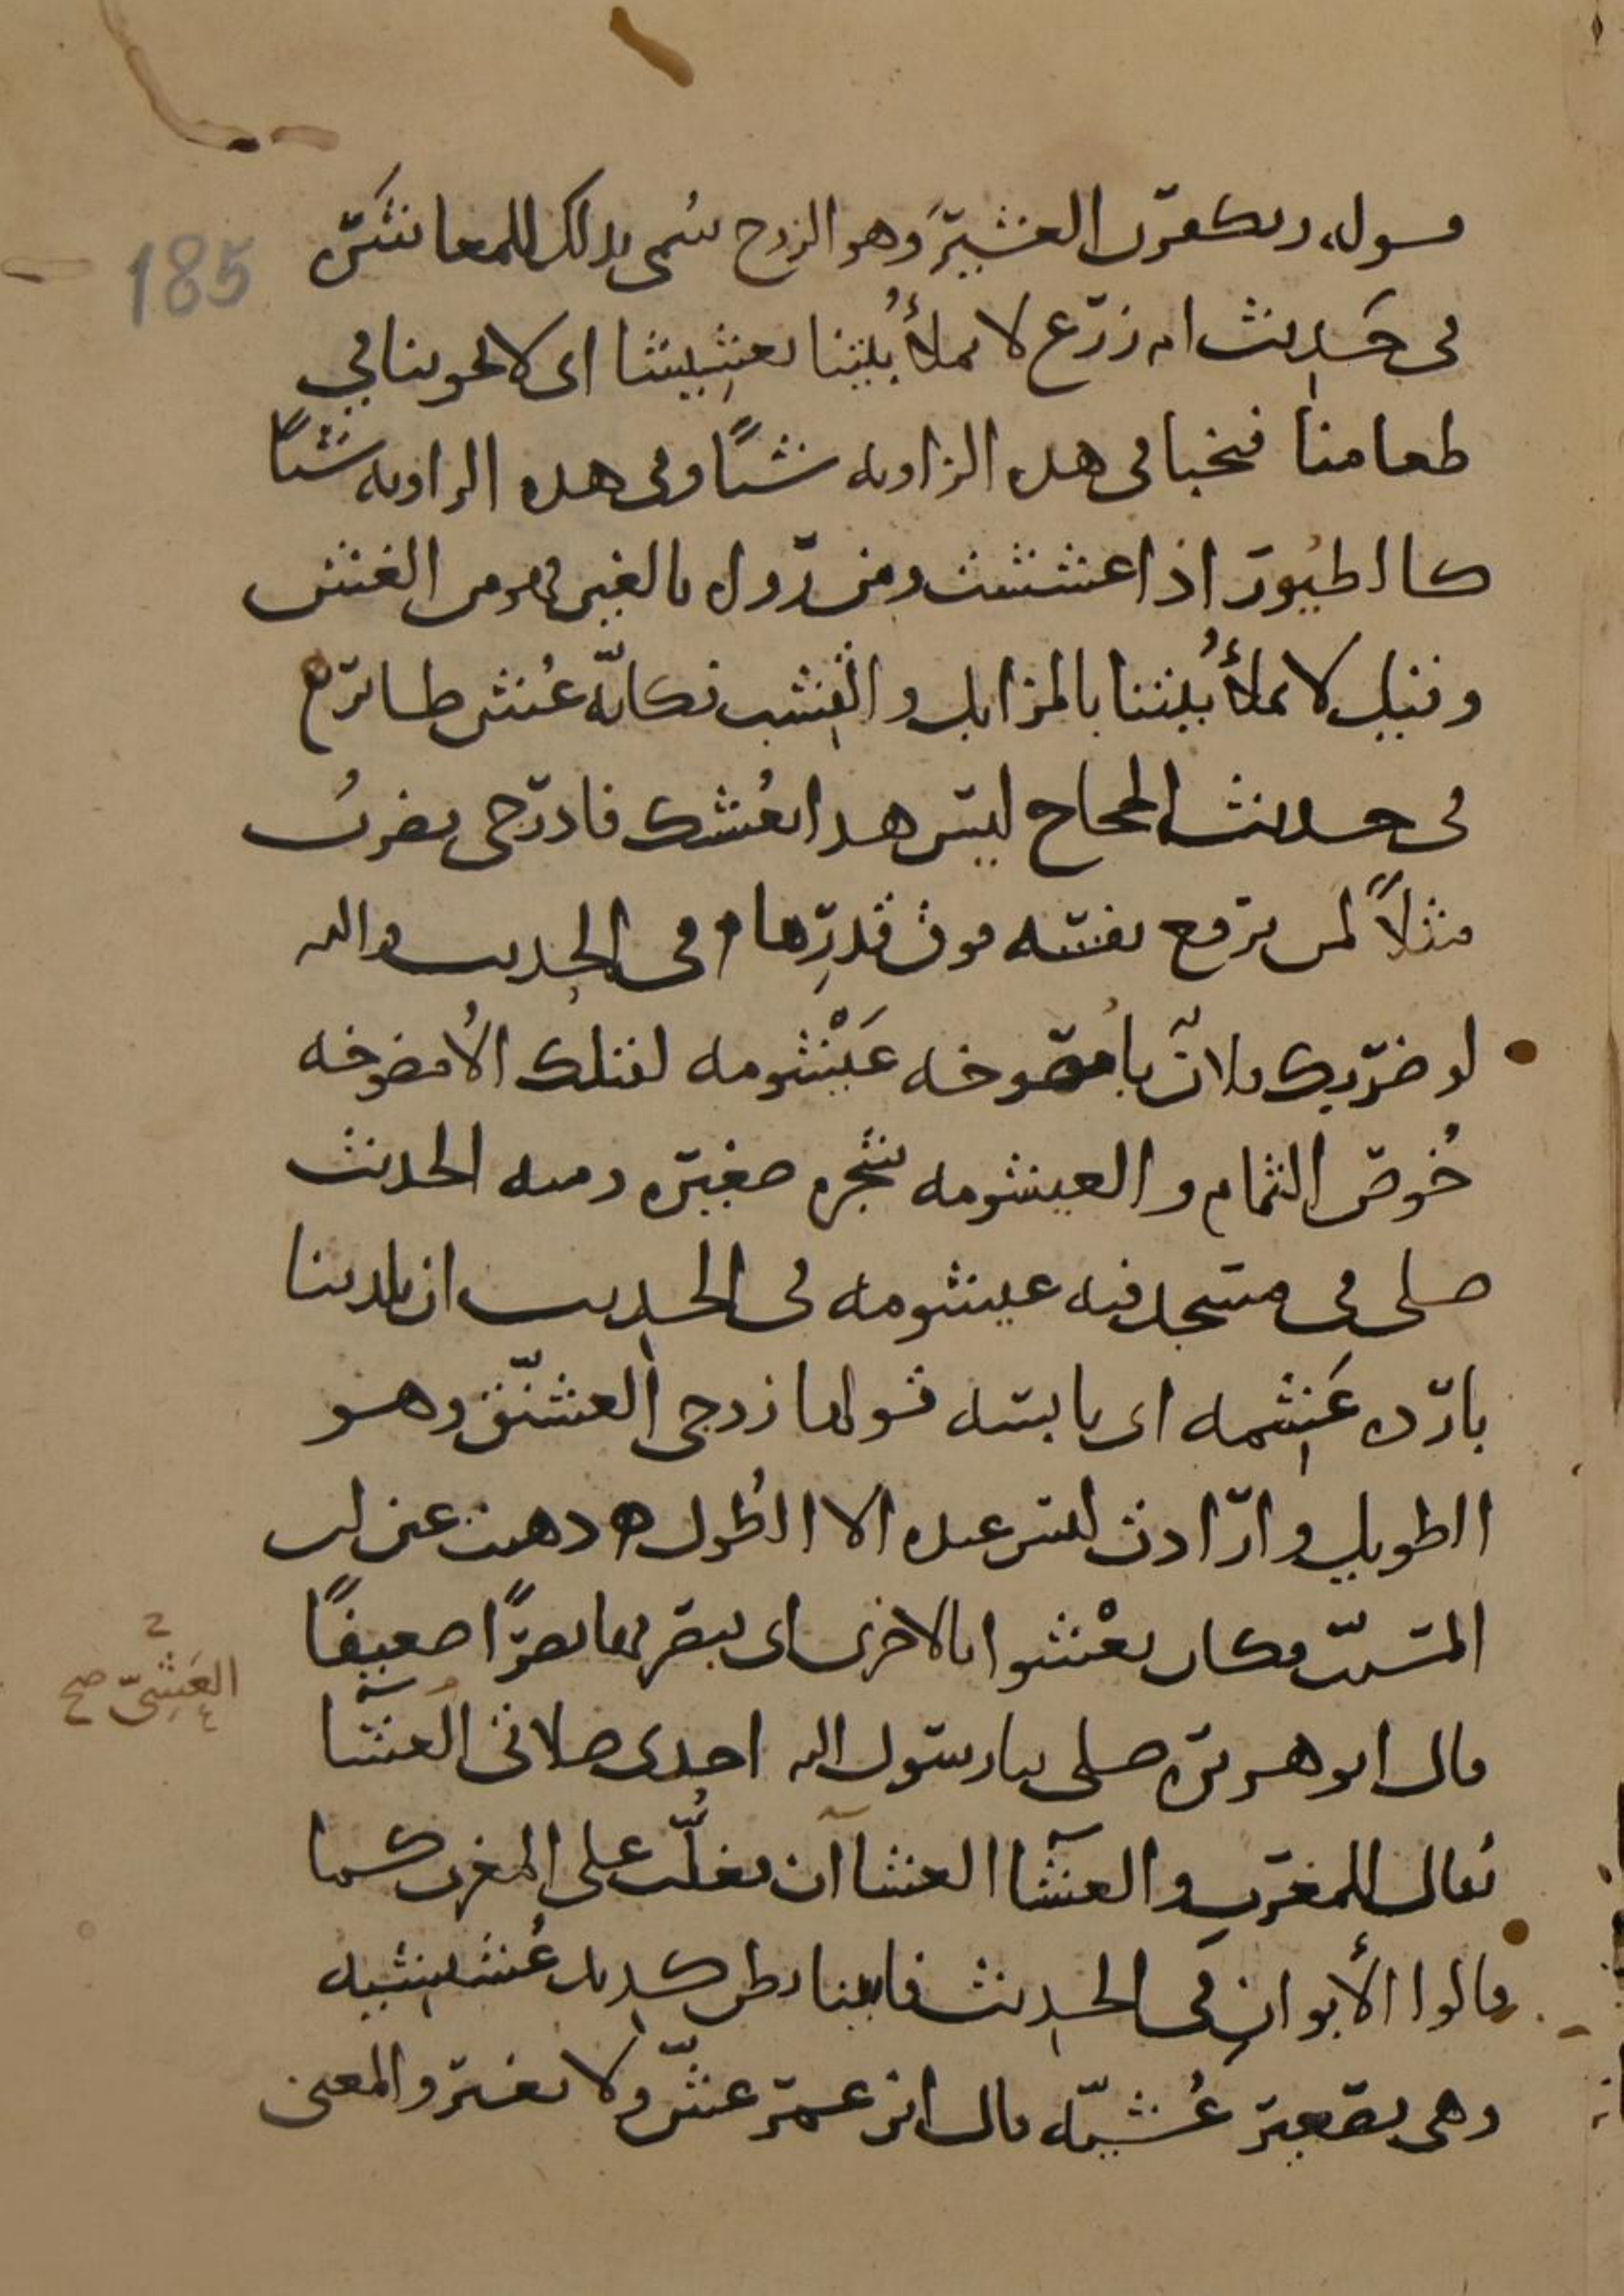 قوله وتكفرن العشير وهو الزوج سُمى بذلك للمعاشرة
185
فى حديث ام زرع لا تملأ بيتنا تعشيشا اى لا تخوننا في
طعامنا فتخبا فى هذه الزاوية شيًا وفى هذه الزاوية شيًا
كالطيور اذا عششت ومن رواه بالغين فهو من الغش
وقيل لا تملأ بيتنا بالمزابل والقشب فكانّه عُش طائر ه
فى حديث الحجاج ليس هذا بعُشك فادرجى يضربُ
مثلاً لمن يرفع نفسه فوق قدرِها ه فى الحديث والله
لو ضربك فلان بأمصوخه عَيْشومه لقتلك الأمصوخه
خُوص الثمام والعيشومه شجره صغيره ومنه الحديث
صلى فى مسجد فيه عيشومه فى الحديث ان بلدتنا
بارده عَشِمه اى يابسه قولها زوجى العشنّق وهو
الطويل وارادت ليس عنده الا الطُول ه ذهبت عين ابن
المسيّب فكان يعْشوا بالاخرى اى يبصر بها بصرًا ضعيفًا
العَشِىّ صح
قال ابو هريره صلى بنا رسول الله احدى صلاتى العشآ
يقال للمغرب والعشآ العشاآن يغلّب على المغرب كما
قالوا الأبوانِ فى الحديث فاتينا بطن كديد عُشيشيه
وهى تصغير عُشيّه قال ابن عمر عشّ ولا تغتر والمعنى